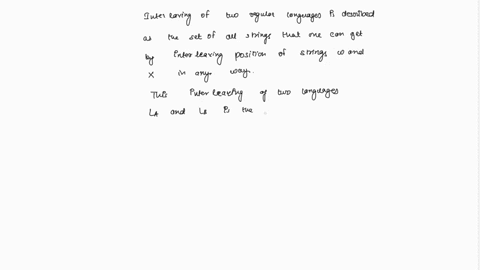 Interleaving of two regular languages is described
as the set of all strings that one can get
by interleaving position of strings w and
x in any way.
This interleaving of two languages
LA and LB is the .